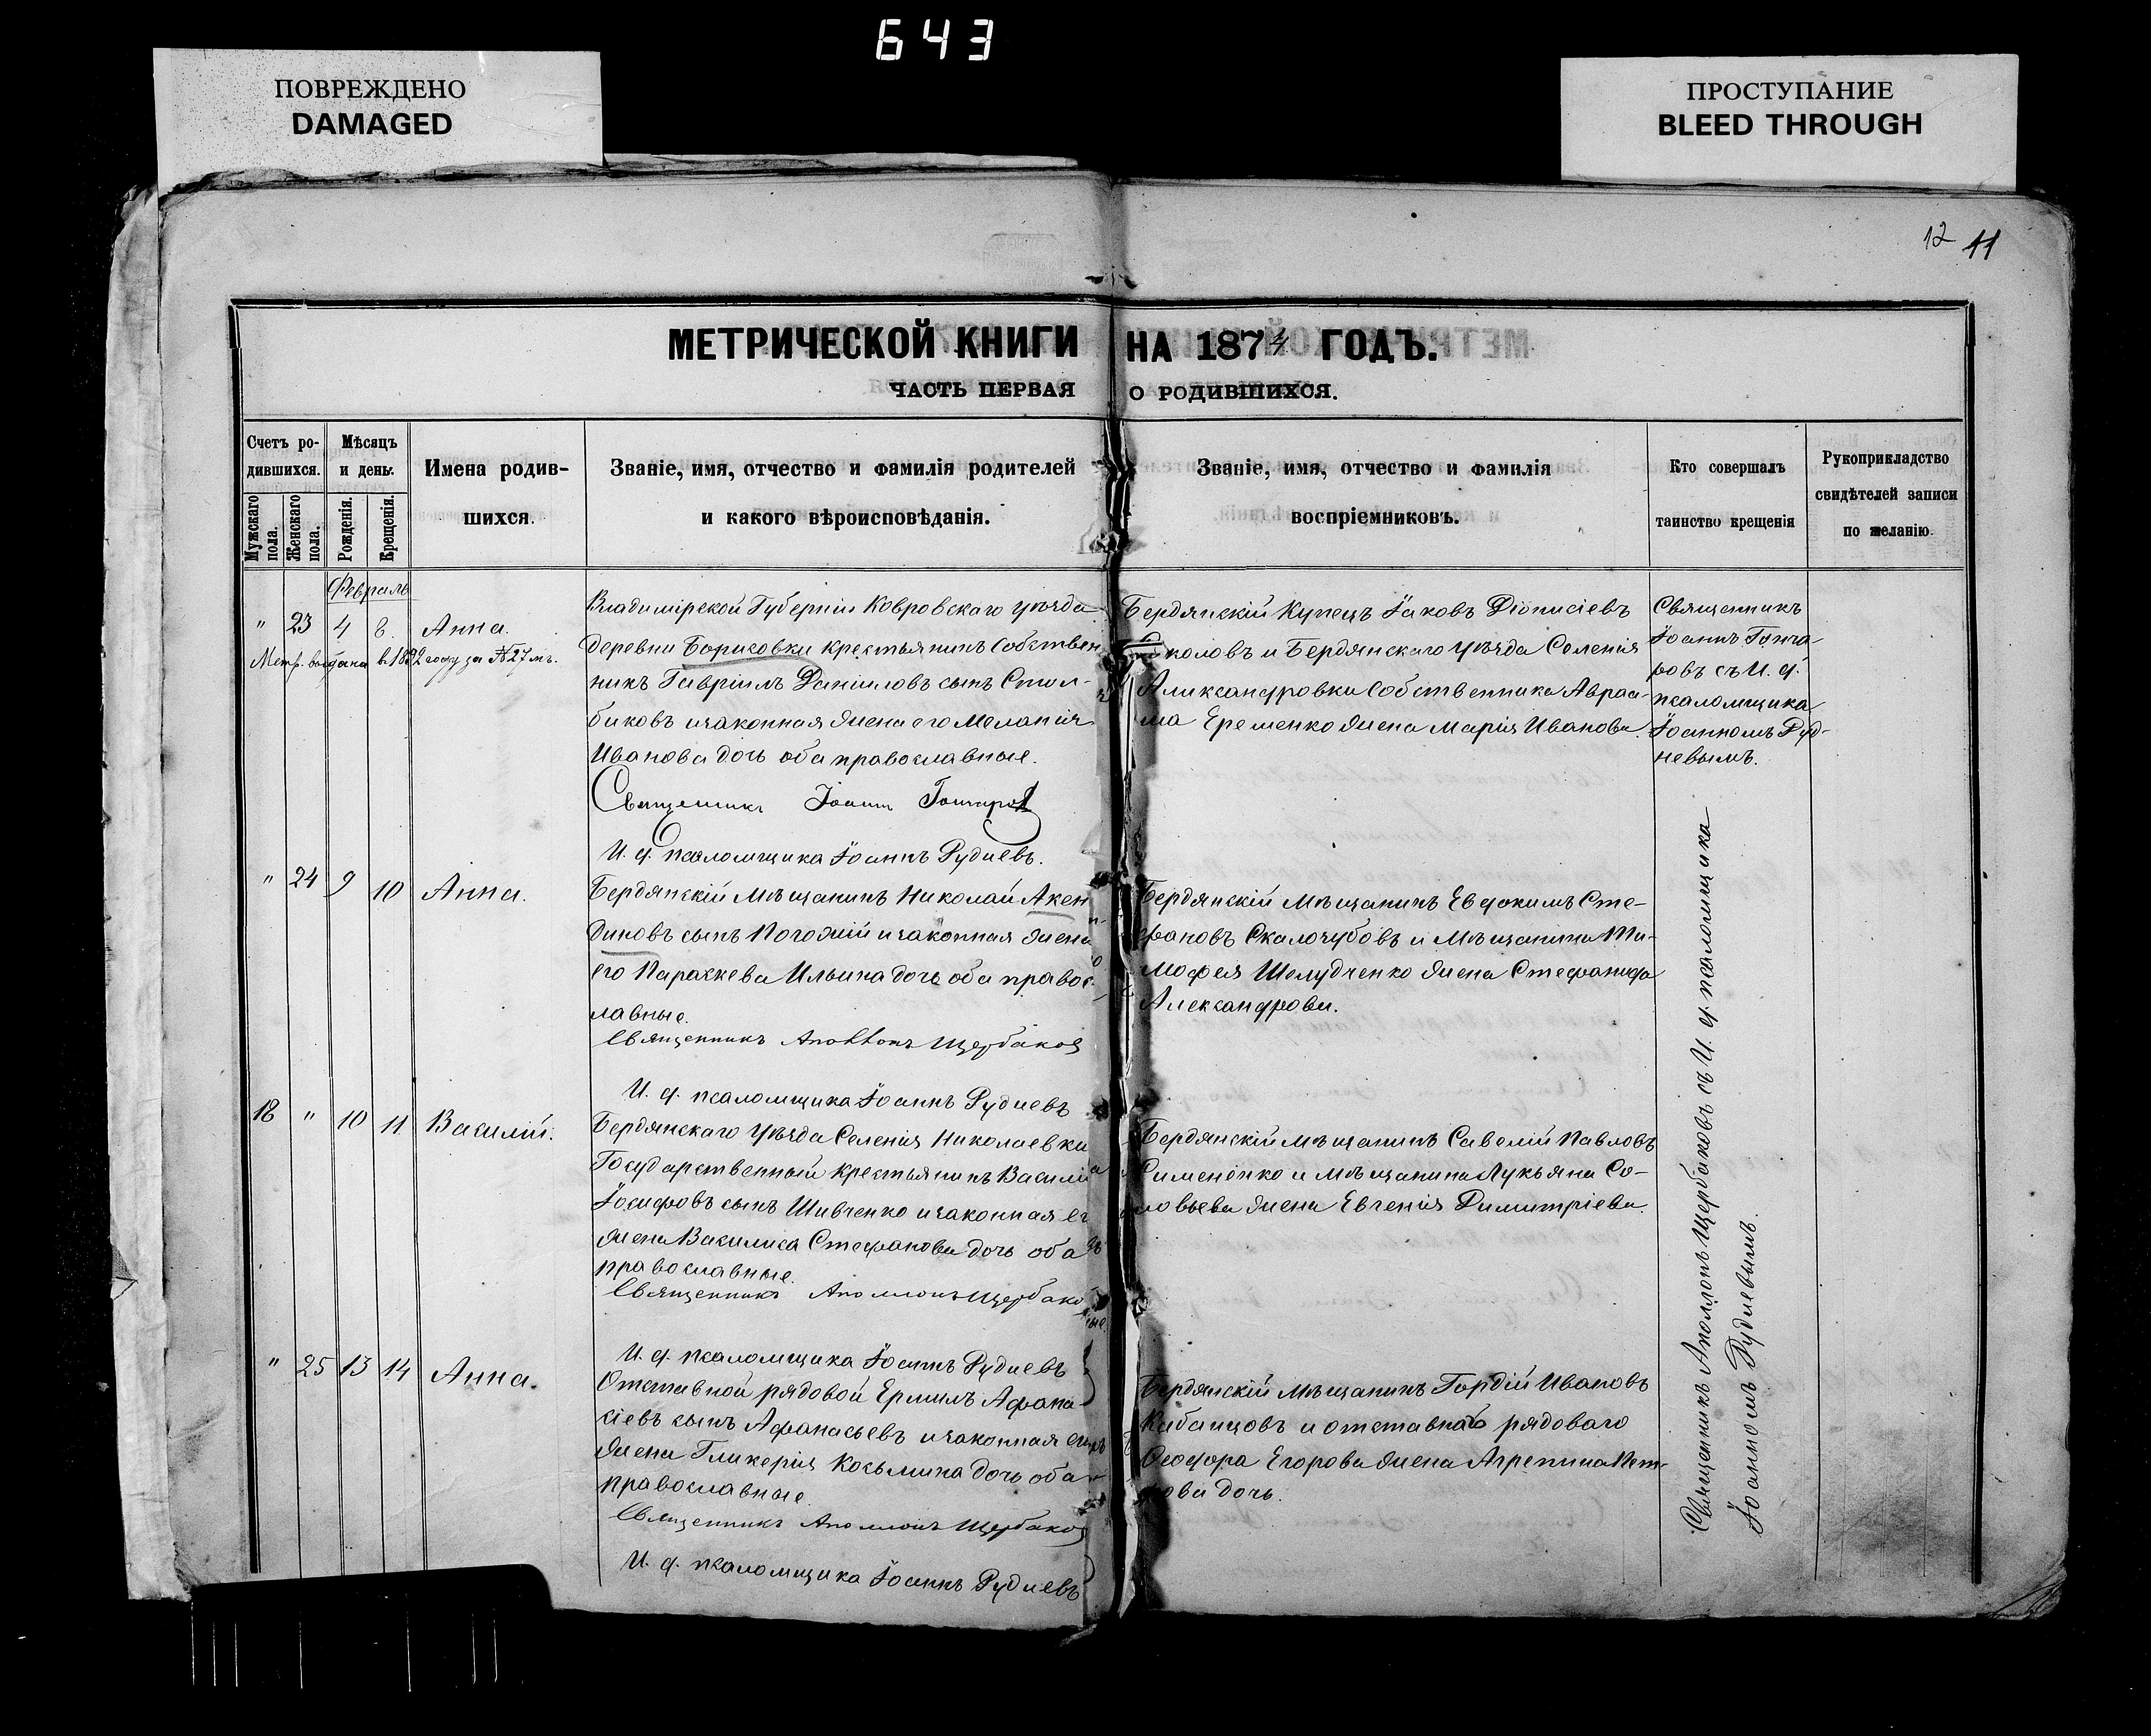 643
ПОВРЕЖДЕНО
DAMAGED
ПРОСТУПАНИЕ
BLEED THROUGH
12 11
МЕТРИЧЕСКОЙ КНИГИ НА 1874 ГОДЪ.
ЧАСТЬ ПЕРВАЯ О РОДИВШИХСЯ.
Счетъ ро-
дившихся.
Мужскаго пола.
Женскаго пола.
Мѣсяцъ
и день.
Рожденія.
Крещенія.
Имена родив-
шихся.
Званіе, имя, отчество и фамилія родителей
и какого вѣроисповѣданія.
Званіе, имя, отчество и фамилія
воспріемниковъ.
Кто совершалъ
таинство крещенія
Рукоприкладство
свидѣтелей записи
по желанію.
Февраль
" 23 4 8. Анна.
Метр. выдана в 1892 году за № 27мъ.
Владимірской Губерніи Ковровскаго уѣзда
деревни Борисовки крестьянинъ Собствен
никъ Гавріилъ Даніиловъ сынъ Стол-
биковъ изаконная жена его Меланія
Иванова дочь оба православные.
Священникъ Іоаннъ Гончаров
И. д. псаломщика Іоаннъ Рудневъ.
Бердянскій Купецъ Іаковъ Діонисіевъ
коловъ и Бердянскаго Уѣзда Селенія
Александровки Собственника Авраа-
ма Еременко жена Марія Иванова.
Священникъ
Іоаннъ Гонча
ровъ съ И. д.
псаломщика
Іоанномъ Руд-
невымъ.
" 24 9 10 Анна.
Бердянскій Мѣщанинъ Николай Акен
диновъ сынъ Погожій изаконная жена
его Параскева Ильина дочь оба правос-
лавные.
Священникъ Аполлонъ Щербаков
И. д. псаломщика Іоаннъ Рудневъ
Бердянскій Мѣщанинъ Евдокимъ Сте-
фановъ Скалозубовъ и Мѣщанина Ти-
мофея Шелудченко жена Стефанида
Александрова.
18 " 10 11 Василій.
Бердянскаго Уѣзда Селенія Николаевки
Государственный крестьянинъ Василій
Іосифовъ сынъ Шивченко изаконная ег
жена Василиса Стефанова дочь оба
православные.
Священникъ Аполлонъ Щербако
И. д. псаломщика Іоаннъ Рудневъ
Бердянскій Мѣщанинъ Савелій Павловъ
Сименѣнко и Мѣщанина Лукьяна Со-
ловьева жена Евгенія Димитріева.
" 25 13 14 Анна.
Отставной рядовой Ермилъ Афана-
сіевъ сынъ Афанасьевъ изаконная его
жена Гликерія Косьмина дочь оба
православные.
Священникъ Аполлонъ Щербаков
И. д. псаломщика Іоаннъ Рудневъ
Бердянскій Мѣщанинъ Гордій Ивановъ
Кабанцовъ и отставнаго рядоваго
Ѳеодора Егорова жена Агрепина Пет-
рова дочь.
Священникъ Аполлонъ Щербаковъ съ И. д. псаломщика
Іоанномъ Рудневымъ.